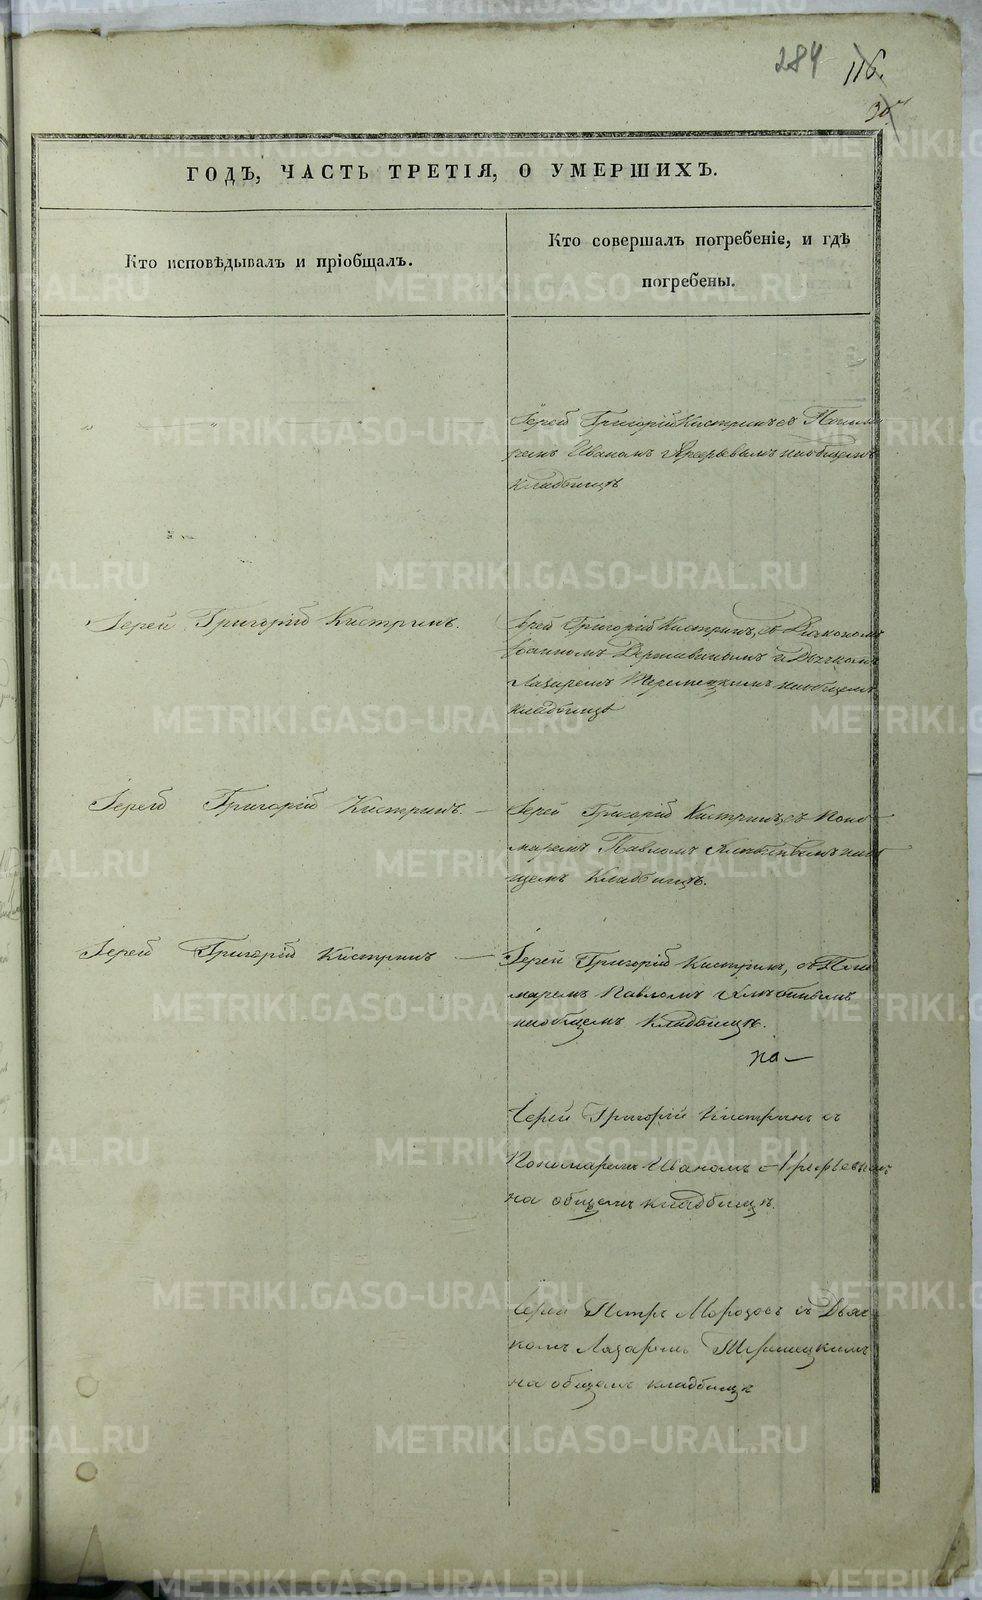 284 116.
30
ГОДЪ, ЧАСТЬ ТРЕТІЯ, О УМЕРШИХЪ.
Кто исповѣдывалъ и пріобщалъ.
Кто совершалъ погребеніе, и гдѣ
погребены.
Іерей Григорій Кистринъ съ Поном
ремъ Иваномъ Арефьевымъ на общемъ
кладбищѣ
Іерей Григорій Кистринъ.
Іерей Григорій Кистринъ, съ Діакономъ
Іоанномъ Державинымъ и Дьячкомъ
Лазаремъ на общемъ
кладбищѣ
Іерей Григорій Кистринъ. —
Іерей Григорій Кистринъ, съ Поно
маремъ Павломъ на об
щемъ кладбищѣ.
Іерей Григорій Кистринъ —
Іерей Григорій Кистринъ, съ Поно
маремъ Павломъ
на общемъ кладбищѣ.
на—
Іерей Григорій Кистринъ съ
Пономаремъ Иваномъ Арефьевымъ
на общемъ кладбищѣ.
Іерей Петръ Морозовъ съ Дьяч
комъ Лазаремъ
на общемъ кладбищѣ
METRIKI.GASO-URAL.RU